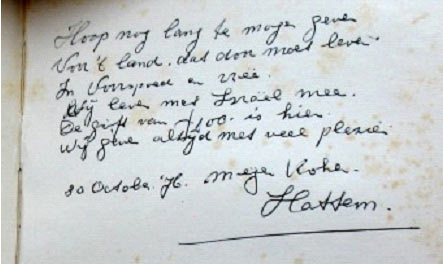 Hoop nog lang te mogen geven
Voor 't land. dat don moet leven
In Voorspoed en vreë.
Wij leven met Israël mee.
De gift van ƒ100. is hier
Wij geve altijd met veel plezier
30 October 76. Meyer Kohen.
Hattem.